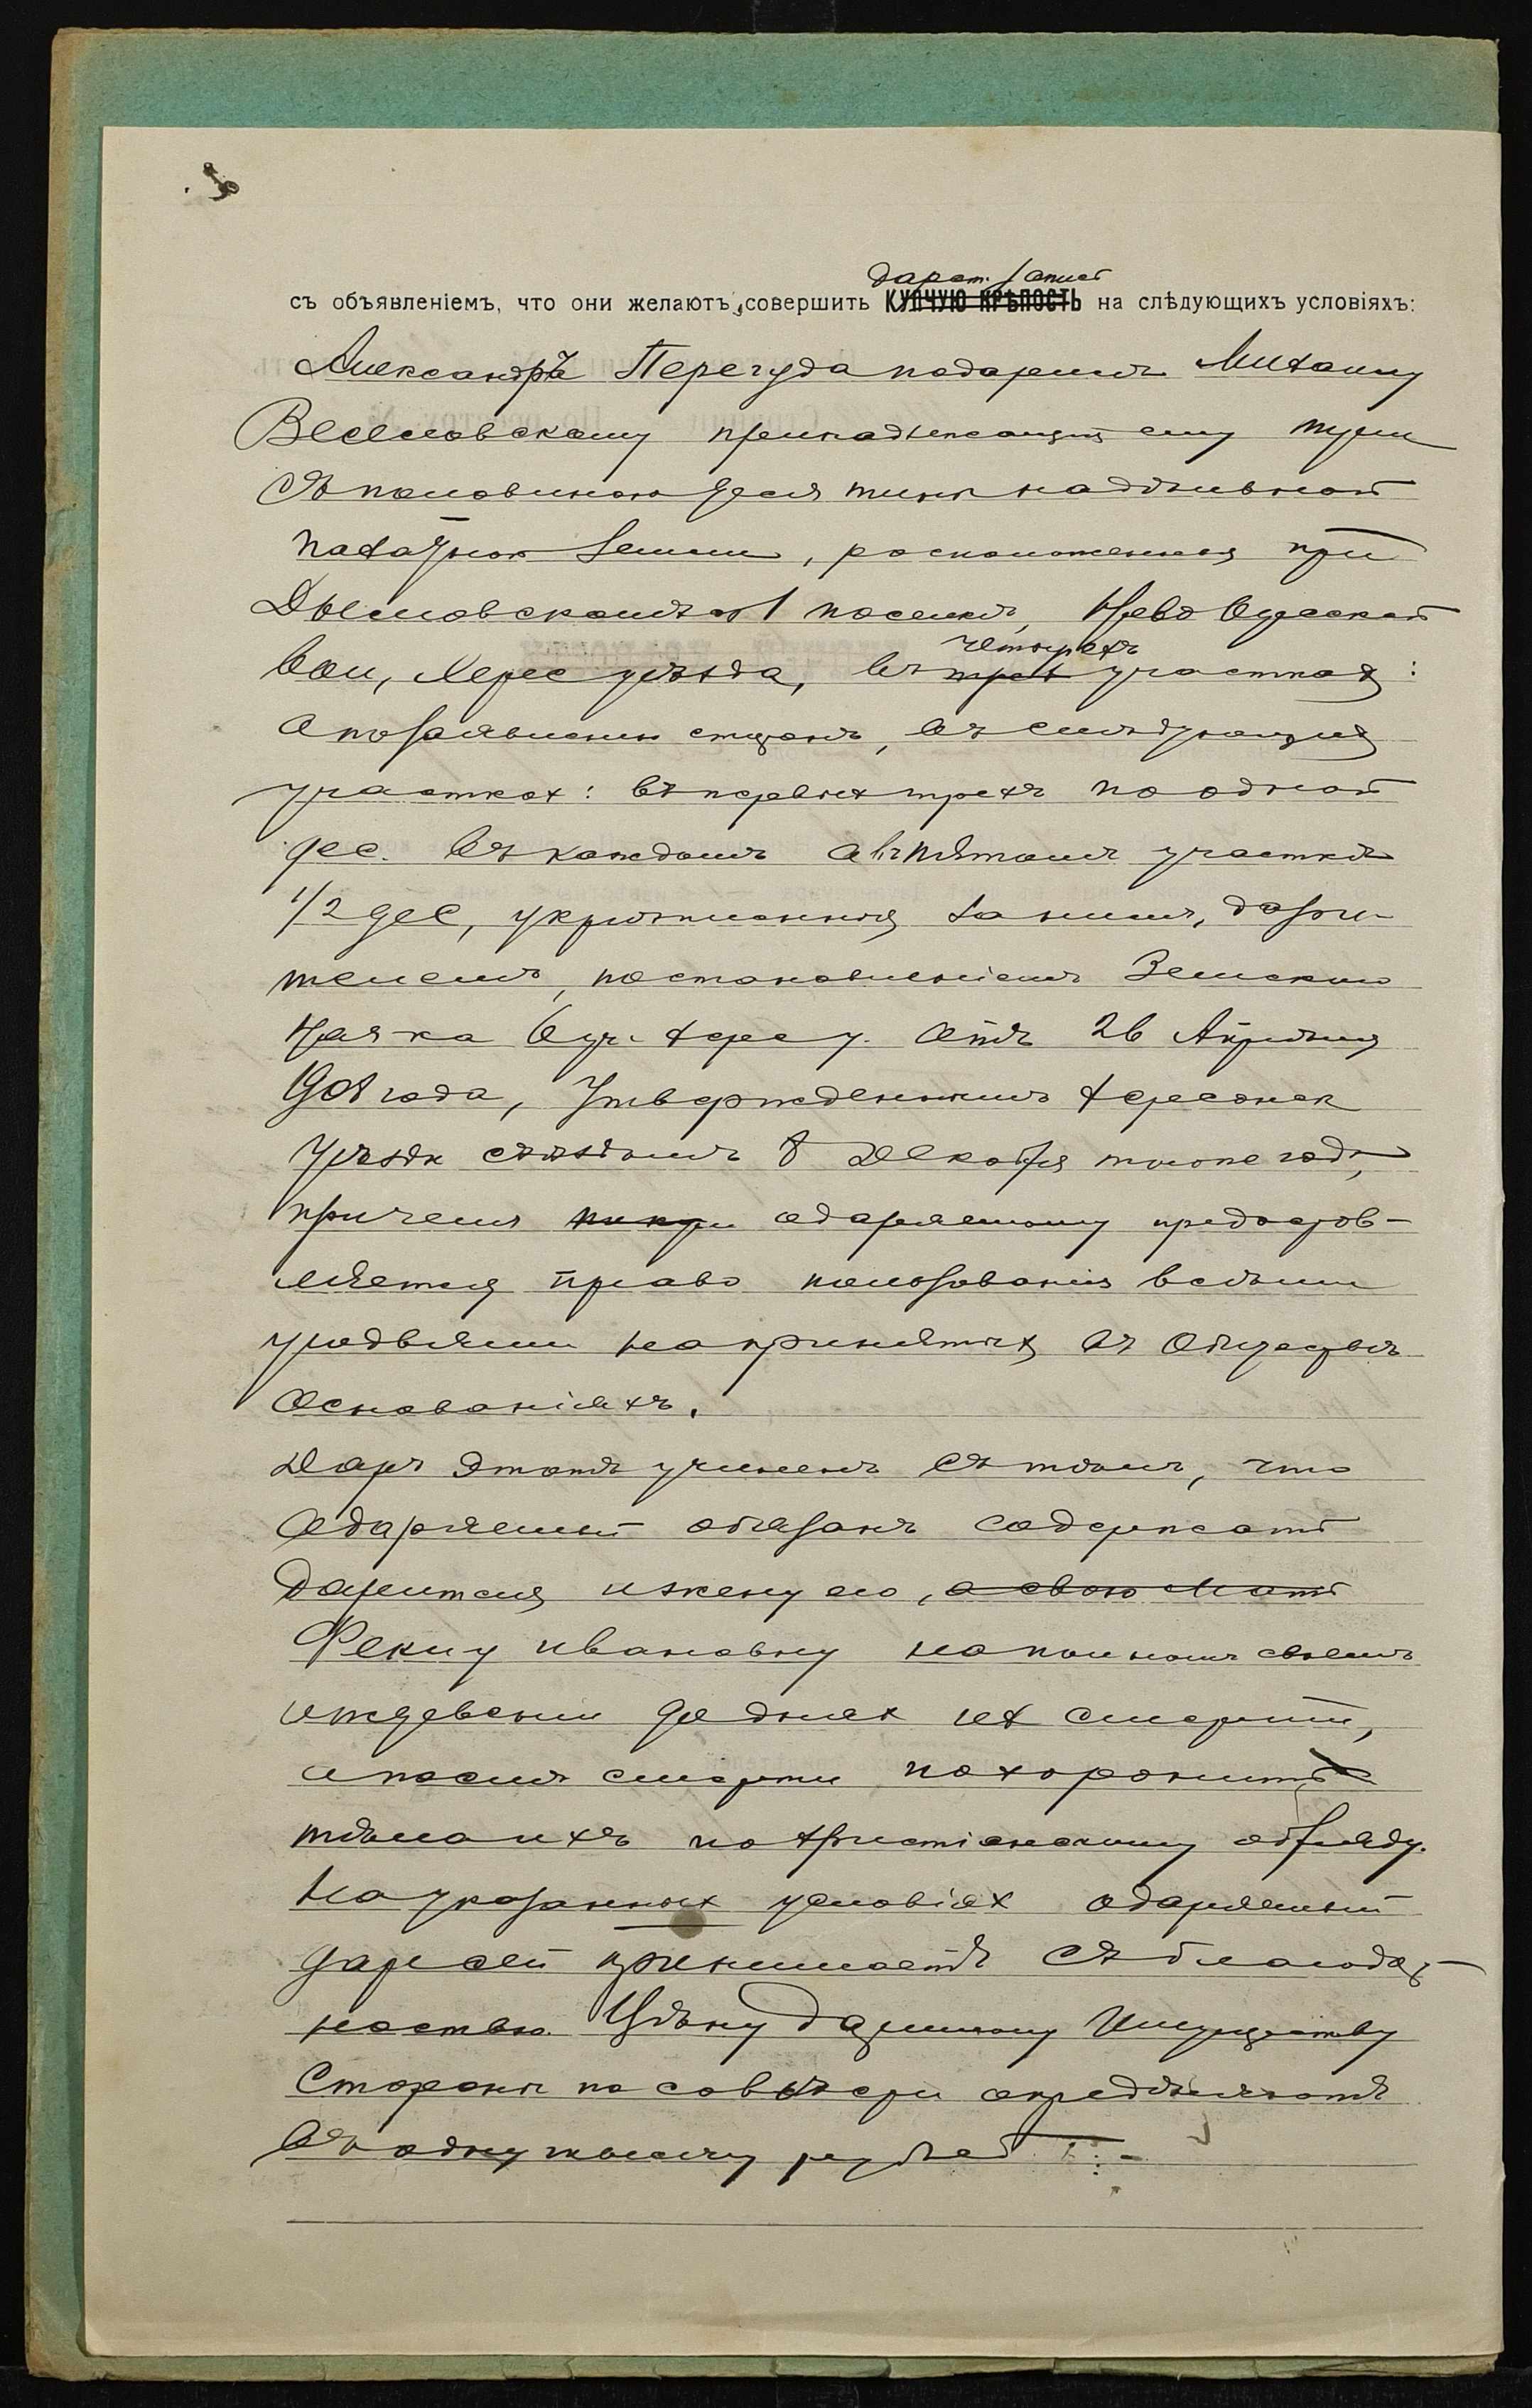 дарст. запись
съ объявленіемъ, что они желаютъ совершить КУПЧУЮ КРѢПОСТЬ на слѣдующихъ условіяхъ:
Александръ Перегуда подарилъ Михаилу
Веселовскому принадлежащія ему три
съ половиною десятины надѣльной
пахатной земли, расположенныя при
Дымовскомъ 1 поселкѣ, Ново Одесской
Вол, Херс уѣзда, въ трехъ четырехъ участкахъ:
а по заявленію сторонъ, въ слѣдующихъ
участках: въ первых трехъ по одной
дес. въ каждомъ а въ пятомъ участкѣ
1/2 дес, укрѣпленныя за нимъ, дари-
телемъ, постановленіемъ Земскаго
Нач-ка 6 уч. Херс у. отъ 26 Апрѣля
года, Утвержденнымъ Херсонск
Уѣздн съѣздомъ 8 Декабря того же года,
причемъ одаряемому предостав-
ляется право пользованія всѣми
угодьями на принятыхъ въ Обществѣ
основаніяхъ.
Даръ этотъ учиненъ съ тѣмъ, что
Одаряемый обязанъ содержать
Дарителя и жену его, а свою мать
Феклу Ивановну на полномъ своемъ
иждевеніи до дней их смерти,
а послѣ смерти похоронить
тѣла ихъ по христіанскому обряду.
На указанных условіях одаряемый
даръ сей принимаетъ съ благодар-
ностью. Цѣну даримому Имуществу
Стороны по совѣсти опредѣляютъ
въ одну тысячу рублей